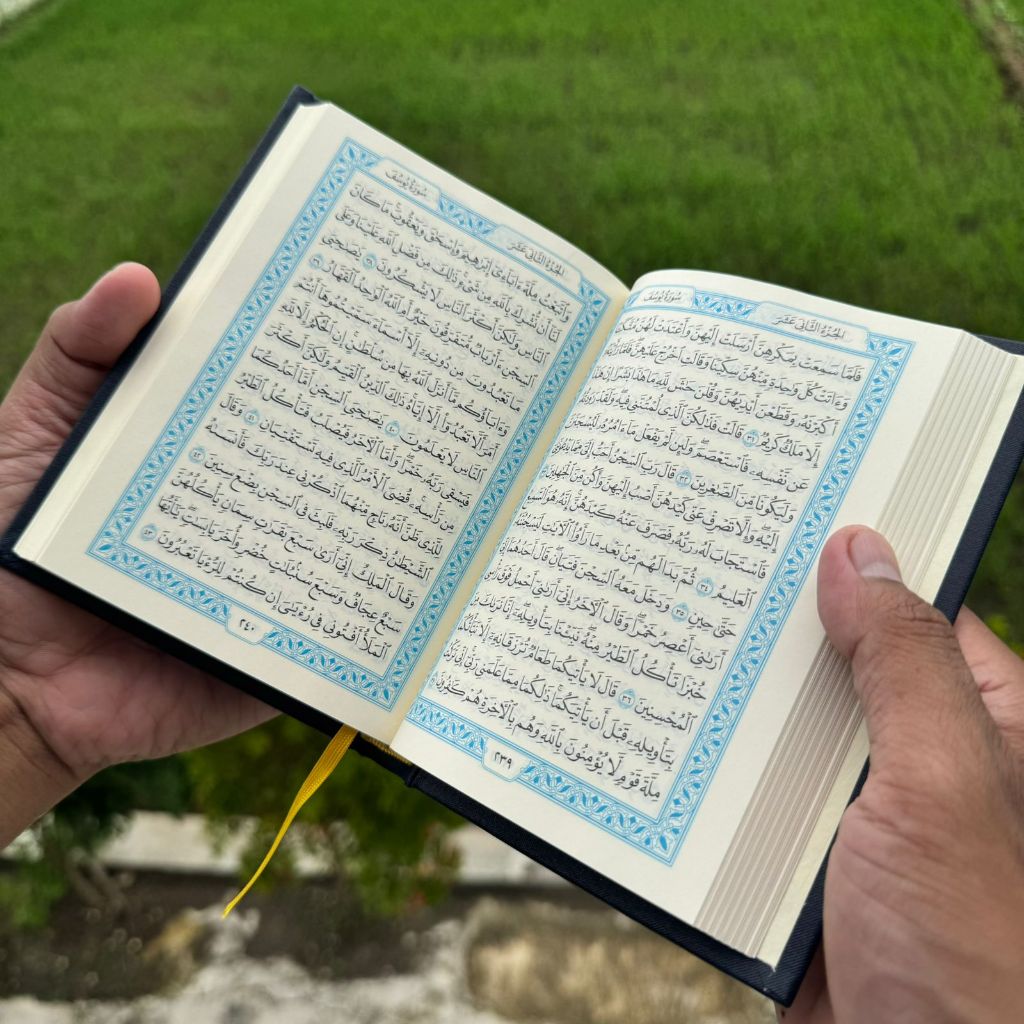 الجُزْءُ الثَّانِي عَشَرَ
سُورَةُ يُوسُفَ
فَلَمَّا سَمِعَتْ بِمَكْرِهِنَّ أَرْسَلَتْ إِلَيْهِنَّ وَأَعْتَدَتْ لَهُنَّ مُتَّكَـًٔا
وَءَاتَتْ كُلَّ وَٰحِدَةٍ مِّنْهُنَّ سِكِّينًا وَقَالَتِ ٱخْرُجْ عَلَيْهِنَّ فَلَمَّا رَأَيْنَهُۥٓ
أَكْبَرْنَهُۥ وَقَطَّعْنَ أَيْدِيَهُنَّ وَقُلْنَ حَٰشَ لِلَّهِ مَا هَٰذَا بَشَرًا إِنْ هَٰذَآ
إِلَّا مَلَكٌ كَرِيمٌ ٣١ قَالَتْ فَذَٰلِكُنَّ ٱلَّذِى لُمْتُنَّنِى فِيهِ وَلَقَدْ رَٰوَدتُّهُۥ
عَن نَّفْسِهِۦ فَٱسْتَعْصَمَ وَلَئِن لَّمْ يَفْعَلْ مَآ ءَامُرُهُۥ لَيُسْجَنَنَّ
وَلَيَكُونًا مِّنَ ٱلصَّٰغِرِينَ ٣٢ قَالَ رَبِّ ٱلسِّجْنُ أَحَبُّ إِلَىَّ مِمَّا يَدْعُونَنِىٓ
إِلَيْهِ وَإِلَّا تَصْرِفْ عَنِّى كَيْدَهُنَّ أَصْبُ إِلَيْهِنَّ وَأَكُن مِّنَ ٱلْجَٰهِلِينَ ٣٣
فَٱسْتَجَابَ لَهُۥ رَبُّهُۥ فَصَرَفَ عَنْهُ كَيْدَهُنَّ إِنَّهُۥ هُوَ ٱلسَّمِيعُ
ٱلْعَلِيمُ ٣٤ ثُمَّ بَدَا لَهُم مِّنۢ بَعْدِ مَا رَأَوُا۟ ٱلْءَايَٰتِ لَيَسْجُنُنَّهُۥ
حَتَّىٰ حِينٍ ٣٥ وَدَخَلَ مَعَهُ ٱلسِّجْنَ فَتَيَانِ قَالَ أَحَدُهُمَآ إِنِّىٓ
أَرَىٰنِىٓ أَعْصِرُ خَمْرًا وَقَالَ ٱلْءَاخَرُ إِنِّىٓ أَرَىٰنِىٓ أَحْمِلُ فَوْقَ رَأْسِى
خُبْزًا تَأْكُلُ ٱلطَّيْرُ مِنْهُ نَبِّئْنَا بِتَأْوِيلِهِۦٓ إِنَّا نَرَىٰكَ مِنَ
ٱلْمُحْسِنِينَ ٣٦ قَالَ لَا يَأْتِيكُمَا طَعَامٌ تُرْزَقَانِهِۦٓ إِلَّا نَبَّأْتُكُمَا
بِتَأْوِيلِهِۦ قَبْلَ أَن يَأْتِيَكُمَا ذَٰلِكُمَا مِمَّا عَلَّمَنِى رَبِّىٓ إِنِّى تَرَكْتُ
مِلَّةَ قَوْمٍ لَّا يُؤْمِنُونَ بِٱللَّهِ وَهُم بِٱلْءَاخِرَةِ هُمْ كَٰفِرُونَ ٣٧
٢٣٩
الجُزْءُ الثَّانِي عَشَرَ
سُورَةُ يُوسُفَ
وَٱتَّبَعْتُ مِلَّةَ ءَابَآءِىٓ إِبْرَٰهِيمَ وَإِسْحَٰقَ وَيَعْقُوبَ مَا كَانَ
لَنَآ أَن نُّشْرِكَ بِٱللَّهِ مِن شَىْءٍ ذَٰلِكَ مِن فَضْلِ ٱللَّهِ عَلَيْنَا وَعَلَى
ٱلنَّاسِ وَلَٰكِنَّ أَكْثَرَ ٱلنَّاسِ لَا يَشْكُرُونَ ٣٨ يَٰصَىٰحِبَىِ
ٱلسِّجْنِ ءَأَرْبَابٌ مُّتَفَرِّقُونَ خَيْرٌ أَمِ ٱللَّهُ ٱلْوَٰحِدُ ٱلْقَهَّارُ ٣٩
مَا تَعْبُدُونَ مِن دُونِهِۦٓ إِلَّآ أَسْمَآءً سَمَّيْتُمُوهَآ أَنتُمْ
وَءَابَآؤُكُم مَّآ أَنزَلَ ٱللَّهُ بِهَا مِن سُلْطَٰنٍ إِنِ ٱلْحُكْمُ إِلَّا لِلَّهِ
أَمَرَ أَلَّا تَعْبُدُوٓا۟ إِلَّآ إِيَّاهُ ذَٰلِكَ ٱلدِّينُ ٱلْقَيِّمُ وَلَٰكِنَّ أَكْثَرَ
ٱلنَّاسِ لَا يَعْلَمُونَ ٤٠ يَٰصَىٰحِبَىِ ٱلسِّجْنِ أَمَّآ أَحَدُكُمَا
فَيَسْقِى رَبَّهُۥ خَمْرًا وَأَمَّا ٱلْءَاخَرُ فَيُصْلَبُ فَتَأْكُلُ ٱلطَّيْرُ
مِن رَّأْسِهِۦ قُضِىَ ٱلْأَمْرُ ٱلَّذِى فِيهِ تَسْتَفْتِيَانِ ٤١ وَقَالَ
لِلَّذِى ظَنَّ أَنَّهُۥ نَاجٍ مِّنْهُمَا ٱذْكُرْنِى عِندَ رَبِّكَ فَأَنسَىٰهُ
ٱلشَّيْطَٰنُ ذِكْرَ رَبِّهِۦ فَلَبِثَ فِى ٱلسِّجْنِ بِضْعَ سِنِينَ ٤٢
وَقَالَ ٱلْمَلِكُ إِنِّىٓ أَرَىٰ سَبْعَ بَقَرَٰتٍ سِمَانٍ يَأْكُلُهُنَّ
سَبْعٌ عِجَافٌ وَسَبْعَ سُنۢبُلَٰتٍ خُضْرٍ وَأُخَرَ يَابِسَٰتٍ يَٰٓأَيُّهَا
ٱلْمَلَأُ أَفْتُونِى فِى رُءْيَٰىَ إِن كُنتُمْ لِلرُّءْيَا تَعْبُرُونَ ٤٣
٢٤٠